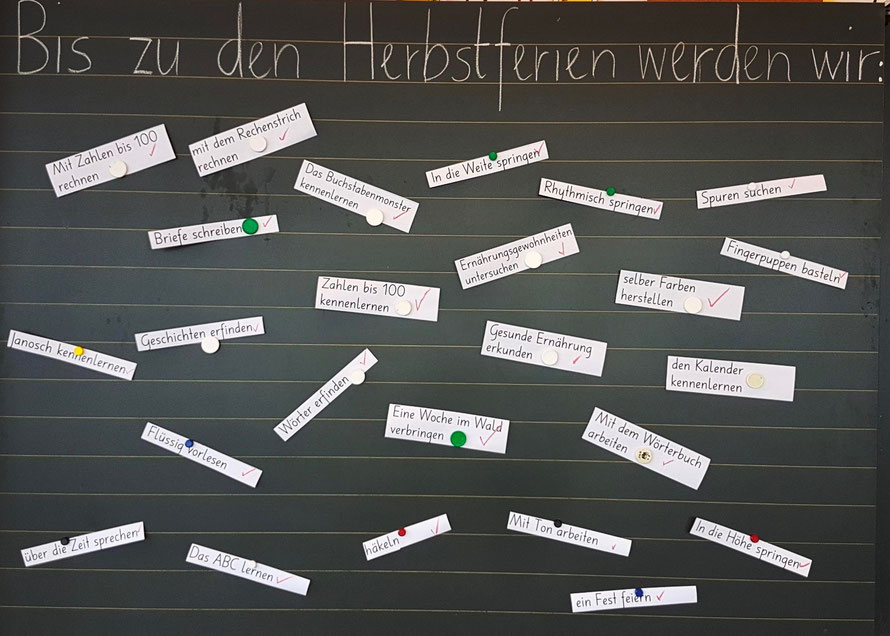 Bis zu den Herbstferien werden wir:
Mit Zahlen bis 100
rechnen
mit dem Rechenstrich
rechnen
Das Buchstabenmonster
kennenlernen
In die Weite springen
Rhythmisch springen
Spuren suchen
Briefe schreiben
Ernährungsgewohnheiten
untersuchen
Fingerpuppen basteln
Zahlen bis 100
kennenlernen
selber Farben
herstellen
Janosch kennenlernen
Geschichten erfinden
Gesunde Ernährung
erkunden
den Kalender
kennenlernen
Wörter erfinden
Eine Woche im Wald
verbringen
Mit dem Wörterbuch
arbeiten
Flüssig vorlesen
über die Zeit sprechen
Das ABC lernen
häkeln
Mit Ton arbeiten
In die Höhe springen
ein Fest feiern